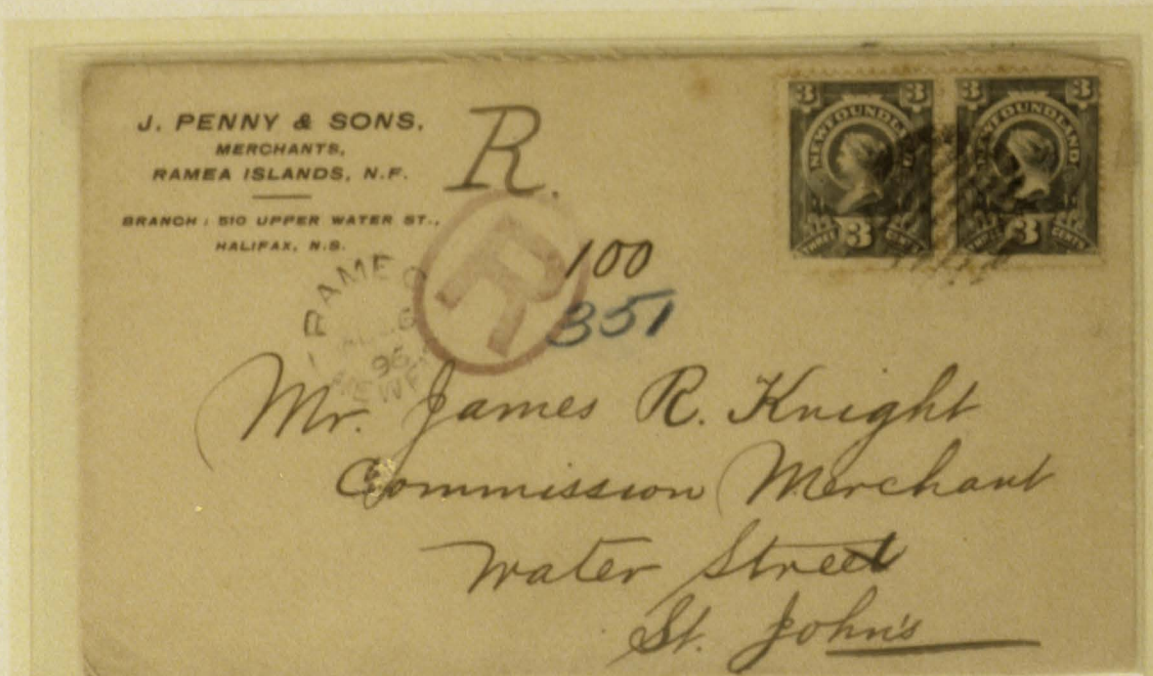 J. PENNY & SONS,
MERCHANTS,
RAMEA ISLANDS, N.F.
BRANCH: 510 UPPER WATER ST.,
HALIFAX, N.S.
R.
R
100
351
3 3
NEWFOUNDLAND
THREE 3 CENTS
3 3
NEWFOUNDLAND
THREE 3 CENTS
RAMEA
96
NEWF
Mr. James R. Knight
Commission Merchant
Water Street
St. John's